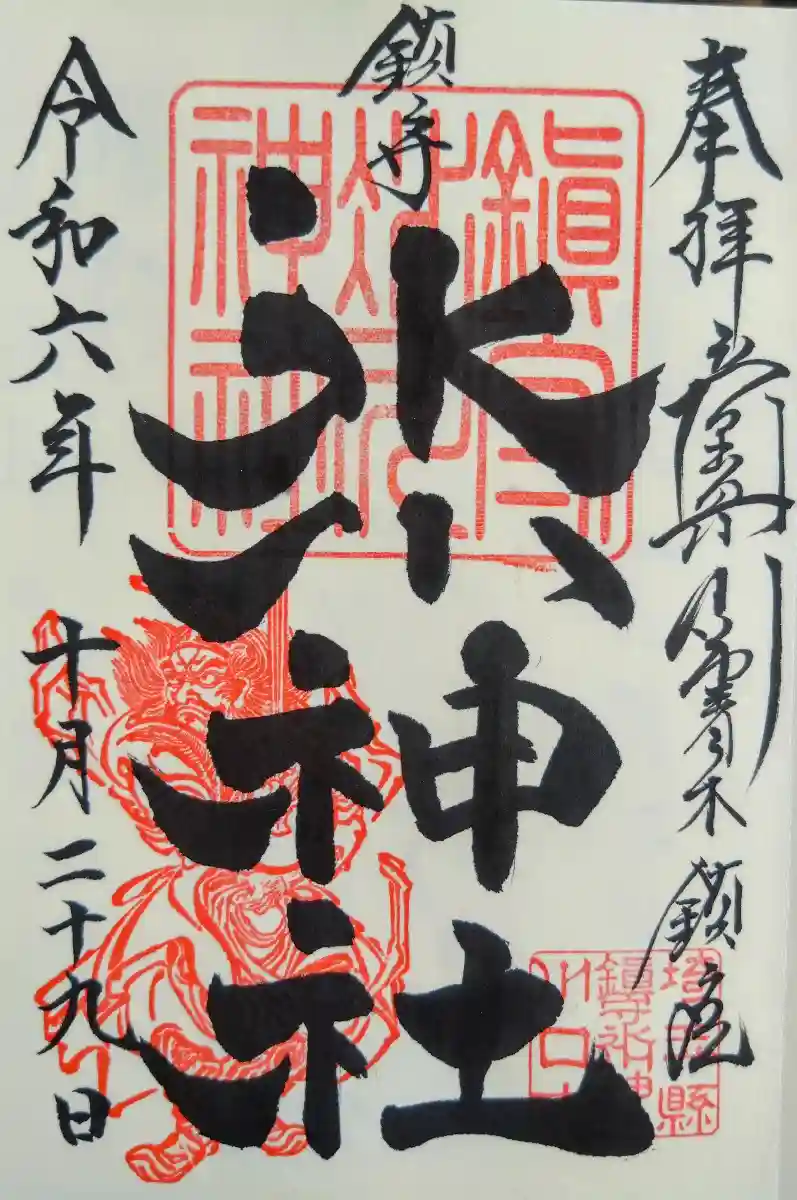 奉拝
青木
鎮座
鎮守
氷川神社
令和六年
十月二十九日
鎭守
氷川
神社
埼玉縣